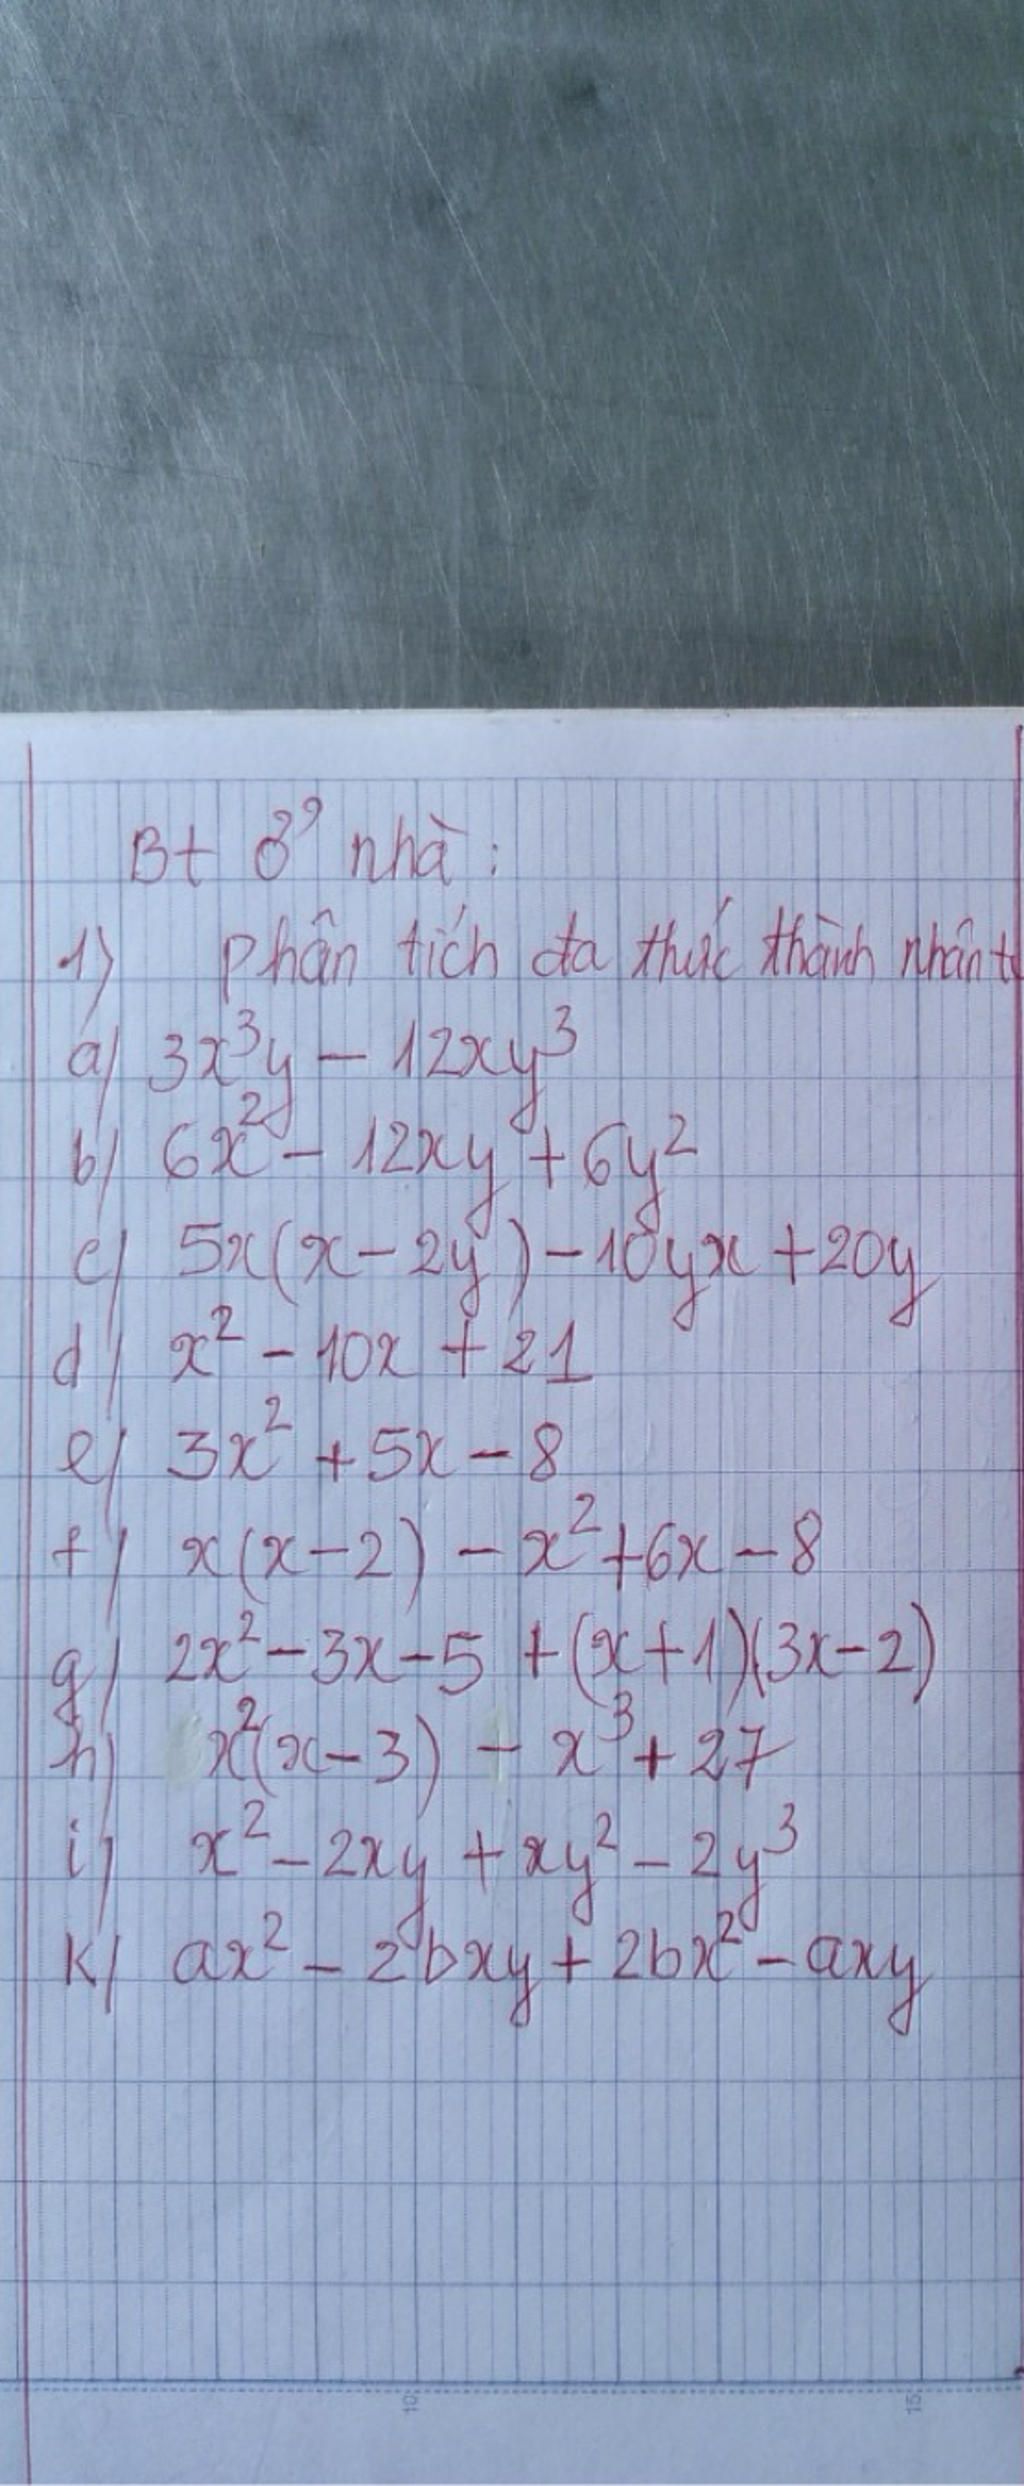 Bt ở nhà:
1) phân tích đa thức thành nhân
a/ 3x³y - 12xy³
b/ 6x² - 12xy + 6y²
c/ 5x(x-2y) - 10yx + 20y
d/ x² - 10x + 21
e/ 3x² + 5x - 8
f/ x(x-2) - x² + 6x - 8
g/ 2x² - 3x - 5 + (x+1)(3x-2)
h) x²(x-3) - x³ + 27
i) x² - 2xy + xy² - 2y³
k/ ax² - 2bxy + 2bx² - axy
10
15